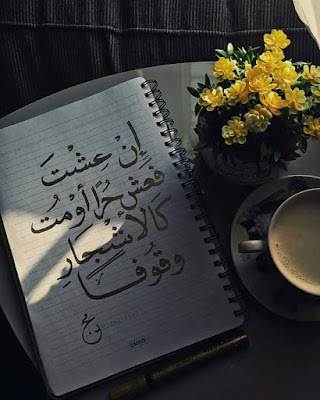 إِنْ عِشْتَ
فَعِشْ حُرًّا أَوْ مُتْ
كَالأَشْجَارِ
وُقُوفًا